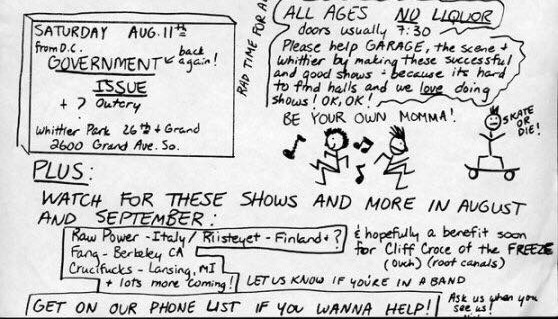 SATURDAY AUG. 11th
from D.C.
GOVERNMENT back again!
ISSUE
+ ? Outcry
Whittier Park 26th + Grand
2600 Grand Ave. So.
RAD TIME FOR A
ALL AGES NO LIQUOR
doors usually 7:30
Please help GARAGE, the scene +
whittier by making these successful
and good shows + because its hard
to find halls and we love doing
shows! OK, OK!
BE YOUR OWN MOMMA!
SKATE
OR
DIE!
PLUS:
WATCH FOR THESE SHOWS AND MORE IN AUGUST
AND SEPTEMBER:
Raw Power - Italy / Riisteyet - Finland + ?
Fang - Berkeley CA
Crucifucks - Lansing, MI
+ lots more coming!
& hopefully a benefit soon
for Cliff Croce of the FREEZE
(ouch) (root canals)
LET US KNOW IF YOU'RE IN A BAND
GET ON OUR PHONE LIST IF YOU WANNA HELP!
Ask us when you
see us!